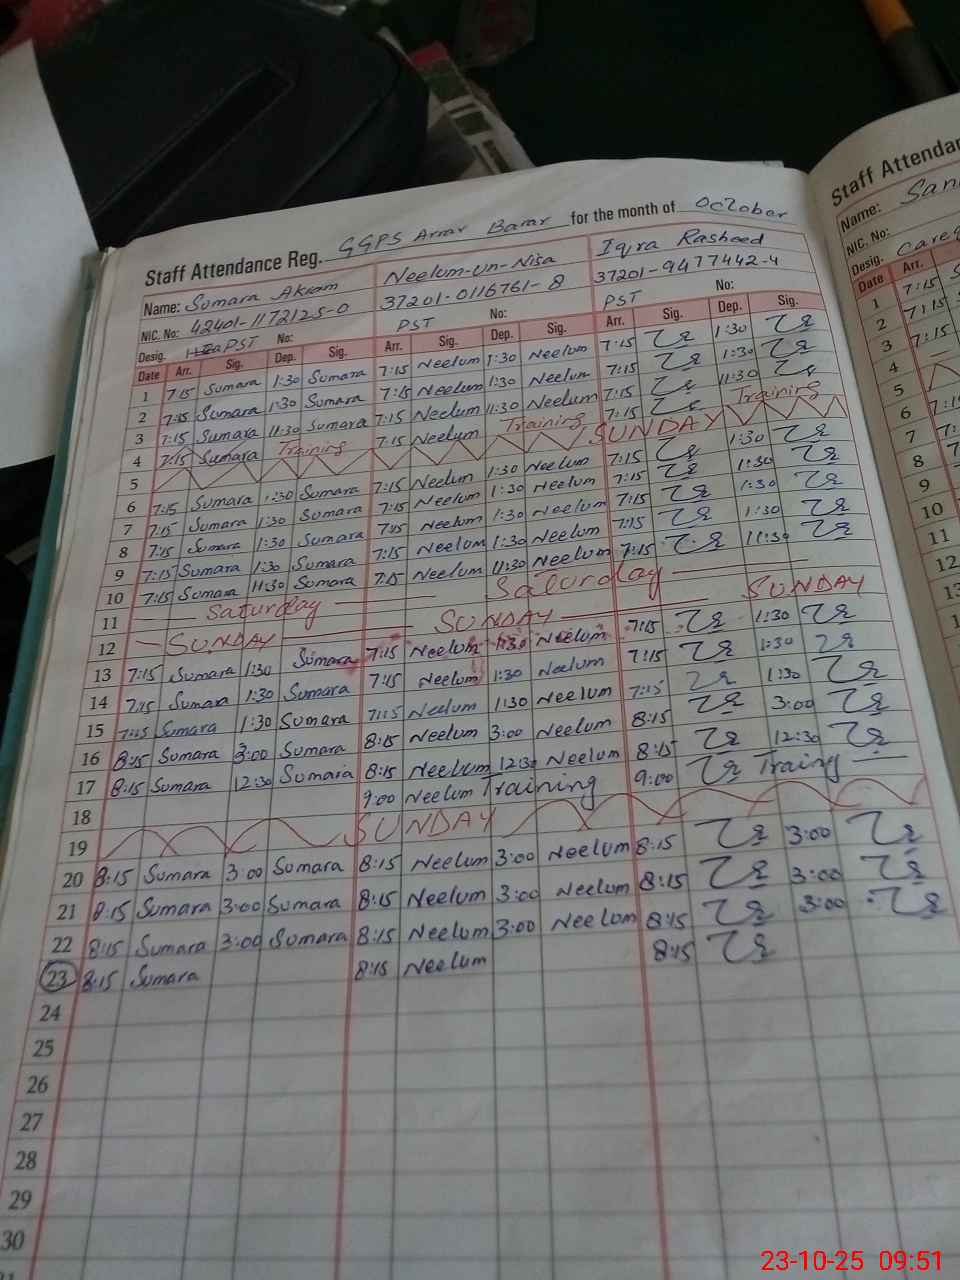 Staff Attendance Reg. GGPS Arrar Barar for the month of October
Name: Sumara Akram Neelum-Un-Nisa Iqra Rasheed
NIC. No: 42401-1172125-0 37201-0116761-8 37201-9477442-4
Desig. PST No: PST No: PST No:
Date Arr. Sig. Dep. Sig. Arr. Sig. Dep. Sig. Arr. Sig. Dep. Sig.
1 7:15 Sumara 1:30 Sumara 7:15 Neelum 1:30 Neelum 7:15 1:30
2 7:15 Sumara 1:30 Sumara 7:15 Neelum 1:30 Neelum 7:15 1:30
3 7:15 Sumara 11:30 Sumara 7:15 Neelum 11:30 Neelum 7:15 11:30
4 7:15 Sumara Training 7:15 Neelum Training 7:15 Training
5 SUNDAY
6 7:15 Sumara 1:30 Sumara 7:15 Neelum 1:30 Neelum 7:15 1:30
7 7:15 Sumara 1:30 Sumara 7:15 Neelum 1:30 Neelum 7:15 1:30
8 7:15 Sumara 1:30 Sumara 7:15 Neelum 1:30 Neelum 7:15 1:30
9 7:15 Sumara 1:30 Sumara 7:15 Neelum 1:30 Neelum 7:15 1:30
10 7:15 Sumara 11:30 Sumara 7:15 Neelum 11:30 Neelum 7:15 11:30
11 Saturday Saturday
12 SUNDAY SUNDAY SUNDAY
13 7:15 Sumara 1:30 Sumara 7:15 Neelum 1:30 Neelum 7:15 1:30
14 7:15 Sumara 1:30 Sumara 7:15 Neelum 1:30 Neelum 7:15 1:30
15 7:15 Sumara 1:30 Sumara 7:15 Neelum 1:30 Neelum 7:15 1:30
16 8:15 Sumara 3:00 Sumara 8:15 Neelum 3:00 Neelum 8:15 3:00
17 8:15 Sumara 12:30 Sumara 8:15 Neelum 12:30 Neelum 8:15 12:30
18 9:00 Neelum Training 9:00 Traing
19 SUNDAY
20 8:15 Sumara 3:00 Sumara 8:15 Neelum 3:00 Neelum 8:15 3:00
21 8:15 Sumara 3:00 Sumara 8:15 Neelum 3:00 Neelum 8:15 3:00
22 8:15 Sumara 3:00 Sumara 8:15 Neelum 3:00 Neelum 8:15 3:00
23 8:15 Sumara 8:15 Neelum 8:15
24
25
26
27
28
29
30
Staff Attendan
Name: San
NIC. No:
Desig.
Date Arr.
1 7:15
2 7:15
3 7:15
4
5
6 7:1
7 7:
8 7
9
10
11
12
23-10-25 09:51